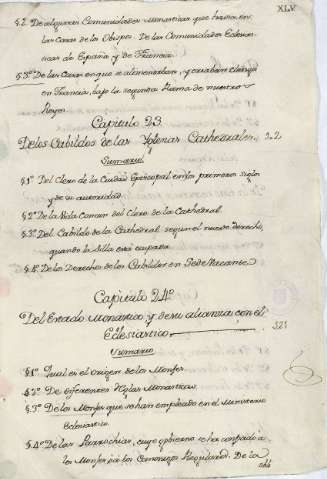 XLV
§.2. De algunas Comunidades Monasticas que havia en
las Casas de los Obispos. De las Comunidades Eclesias-
ticas de España y de Francia.
§.3º De las Casas en que se alimentaban, y criaban clerigos
en Francia, bajo la segunda Rama de nuestros
Reyes.
Capitulo 23.
De los Cabildos de las Yglesias Cathedrales.
Sumario
§.1º Del Clero de la Ciudad Episcopal en los primeros siglos
y de su autoridad
§.2º De la Vida comun del Clero de la Cathedral.
§.3º Del Cabildo de la Cathedral segun el nuevo derecho,
quando la Silla está ocupada.
§.4º De los Derechos de los Cabildos en Sede Vacante.
Capitulo 24º
Del Estado Monastico y de su alianza con el
Eclesiastico.
521
Sumario
§.1º Qual es el origen de los Monjes.
§.2º De diferentes Reglas Monasticas.
§.3º De los Monjes que se han empleado en el Ministerio
Eclesiastico.
§.4º De las Parrochias, cuyo gobierno se ha confiado à
los Monjes ó à los Canonigos Regulares. De la